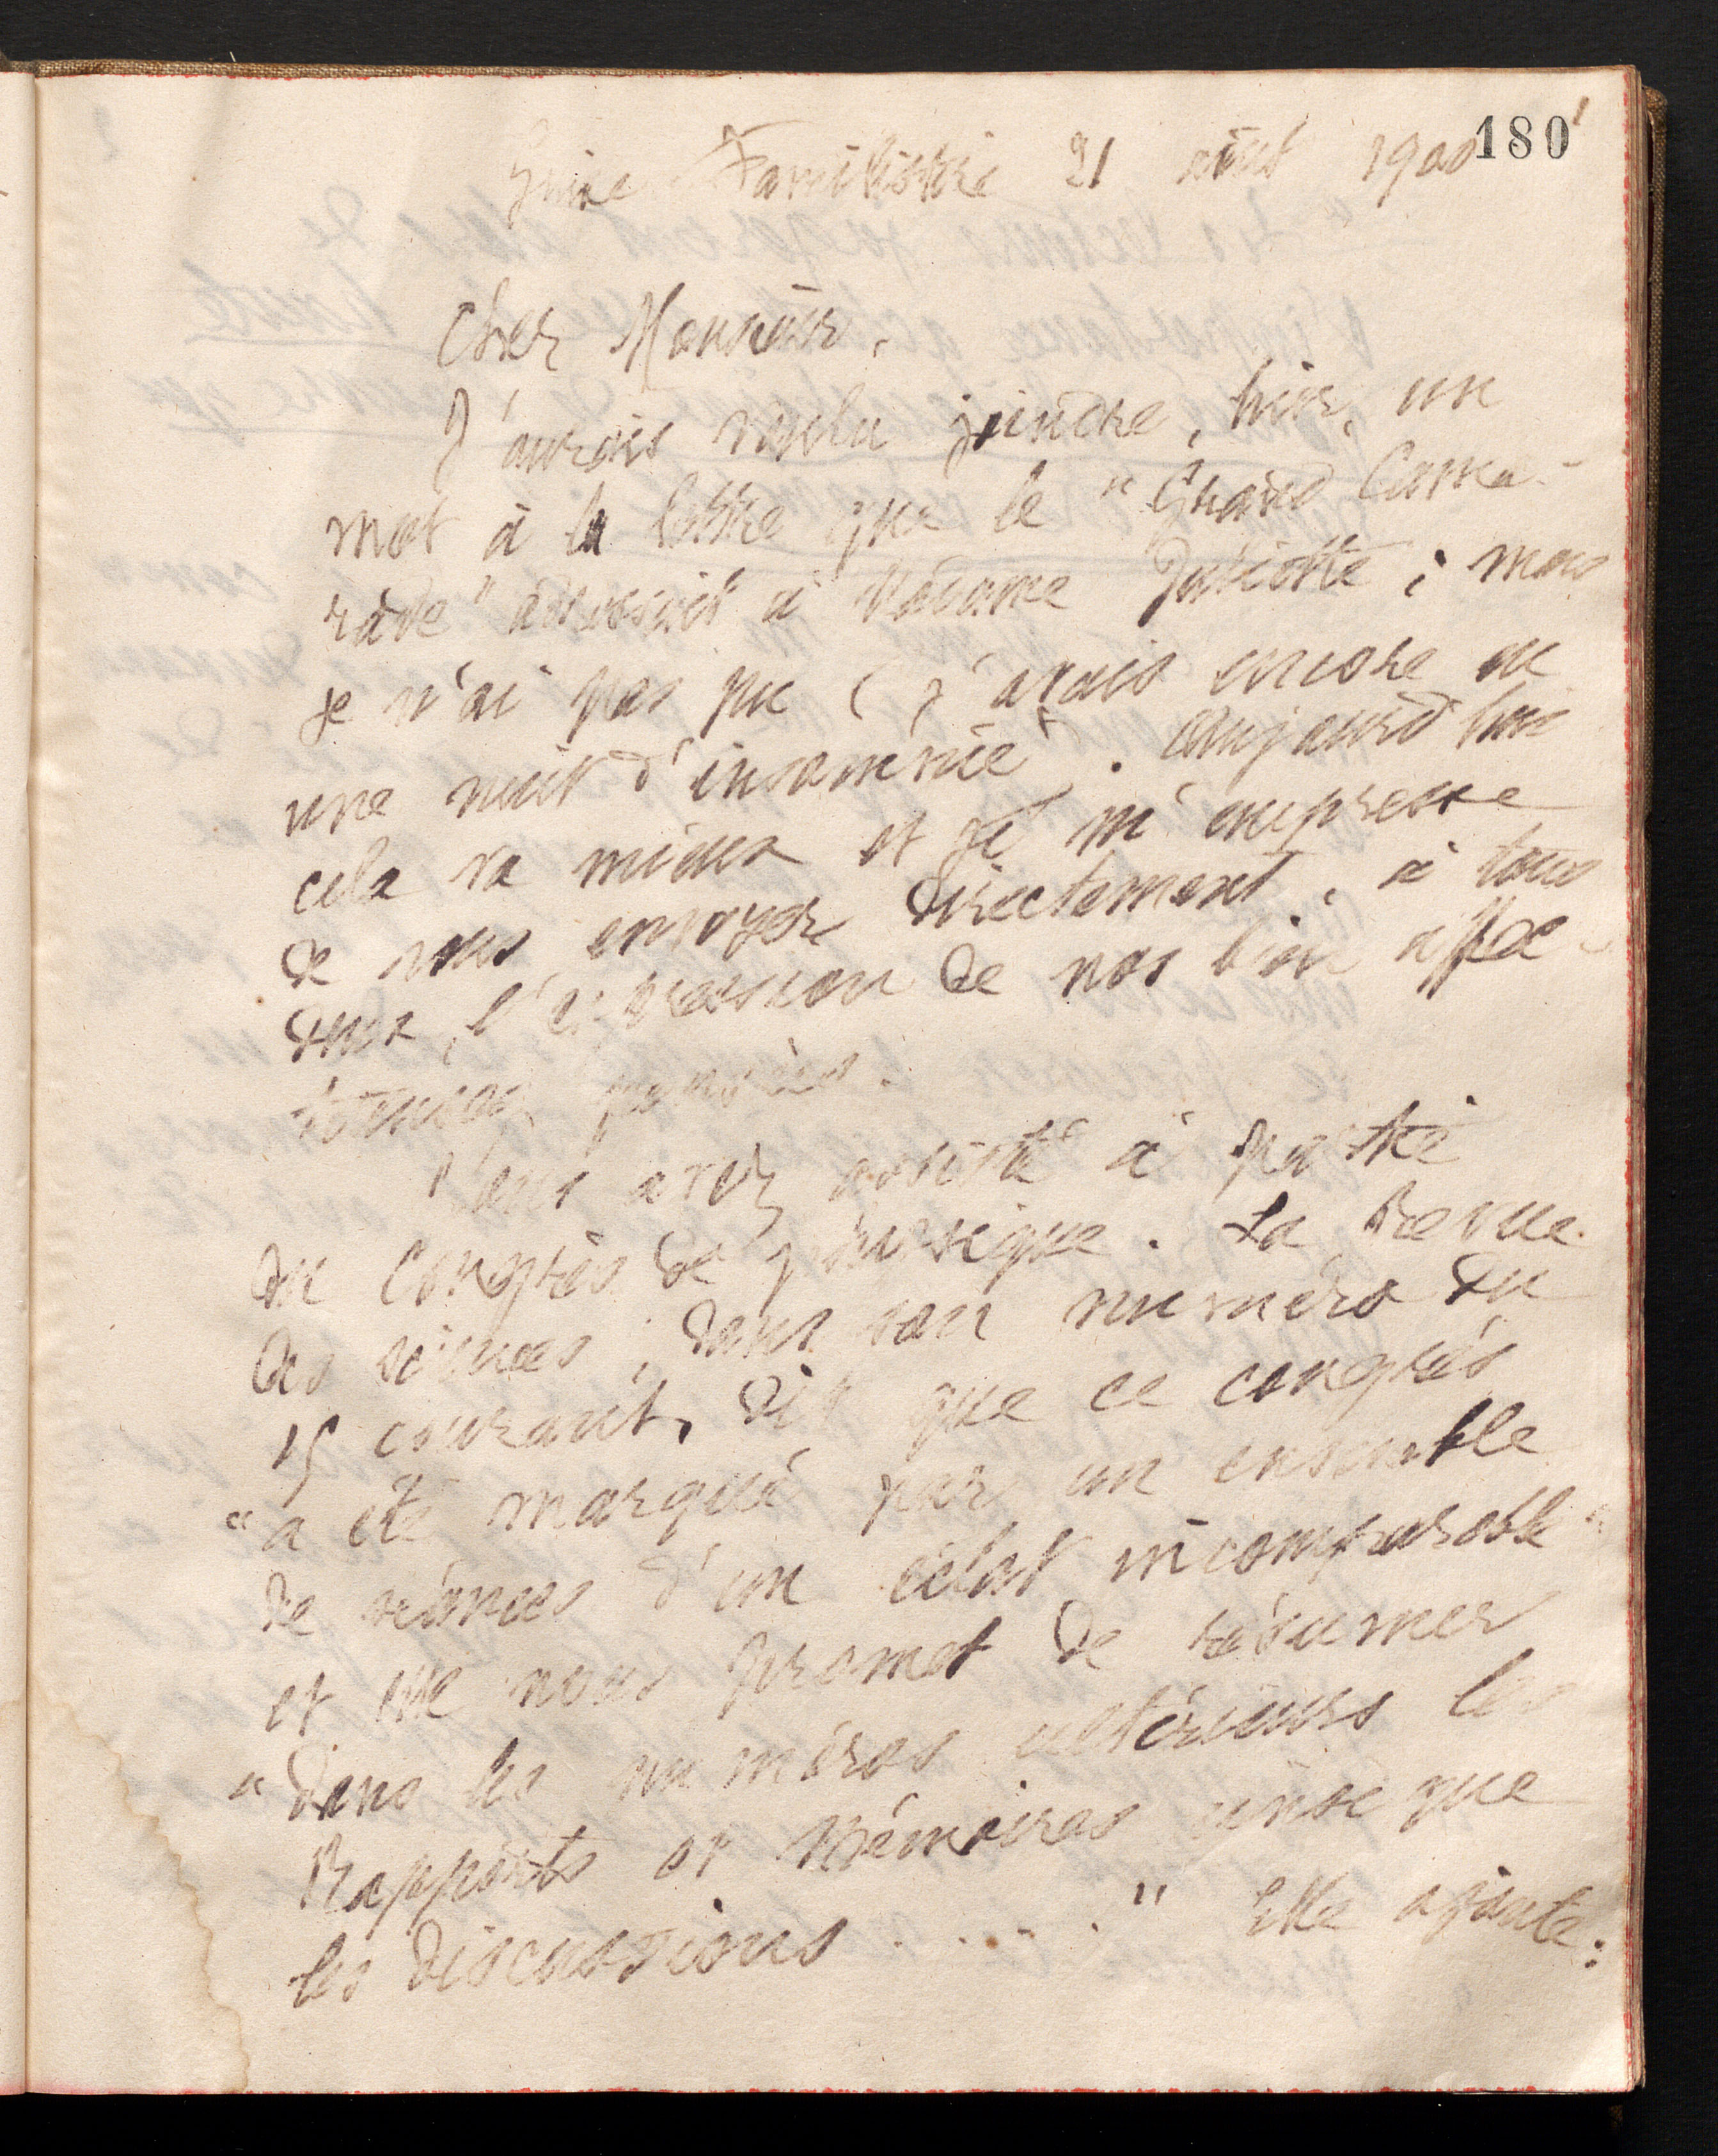 180
1
Guise Familistère 21 août 1900
Cher Monsieur,
J'aurais voulu joindre, hier, un
mot à la lettre que le "Grand Cama-
rade" adressait à Madame Juliotte ; mais
je n'ai pas pu (j'avais encore eu
une nuit d'insomnie). Aujourd'hui
cela va mieux et je m'empresse
de vous envoyer directement, à tous
deux, l'expression de nos bien affec-
tueuses pensées.
Vous avez assisté à partie
du Congrès de physique. La Revue
des sciences, dans son numéro du
15 courant, dit que ce congrès
"a été marqué par un ensemble
de séances d'un éclat incomparable"
et elle nous promet de résumer
"dans les numéros ultérieurs les
Rapports et Mémoires ainsi que
les discussions . . . . ." Elle ajoute :